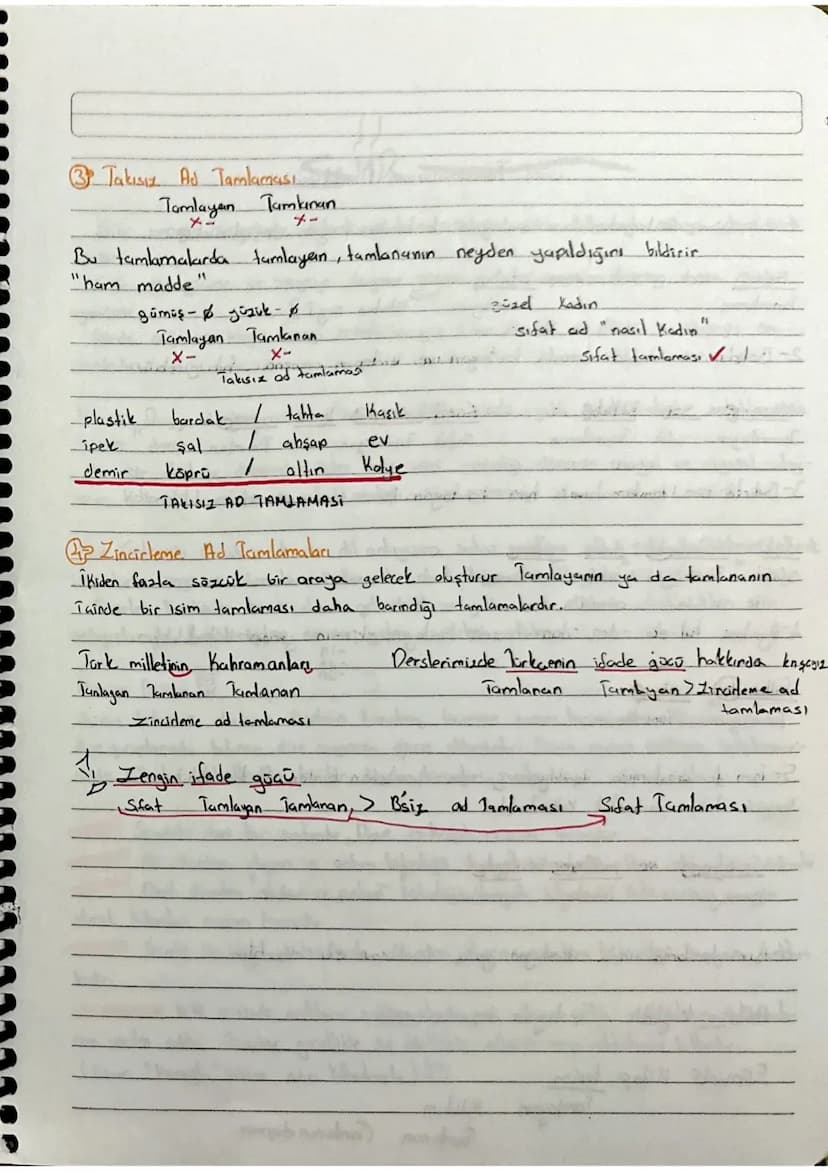 3) Takısız Ad Tamlaması
Tamlayan Tamlanan
x- x-
Bu tamlamalarda tamlayan, tamlananın neyden yapıldığını bildirir
"ham madde"
gümüş-ø yüzük-ø
Tamlayan Tamlanan
x- x-
Takısız ad tamlaması
güzel kadın
sıfat ad "nasıl kadın"
Sıfat tamlaması ✓
plastik bardak / tahta kaşık
ipek şal / ahşap ev
demir köprü / altın kolye
TAKISIZ AD TAMLAMASI
4) Zincirleme Ad Tamlamaları
İkiden fazla sözcük bir araya gelecek oluşturur Tamlayanın ya da tamlananın
içinde bir isim tamlaması daha barındığı tamlamalardır.
Türk milletinin Kahramanları
Tamlayan Tamlanan Tamlanan
Zincirleme ad tamlaması
Derslerimizde Türkçenin ifade gücü hakkında
Tamlanan Tamlayan > Zincirleme ad
tamlaması
Zengin ifade gücü
Sıfat Tamlayan Tamlanan > B'siz ad Tamlaması Sıfat Tamlaması